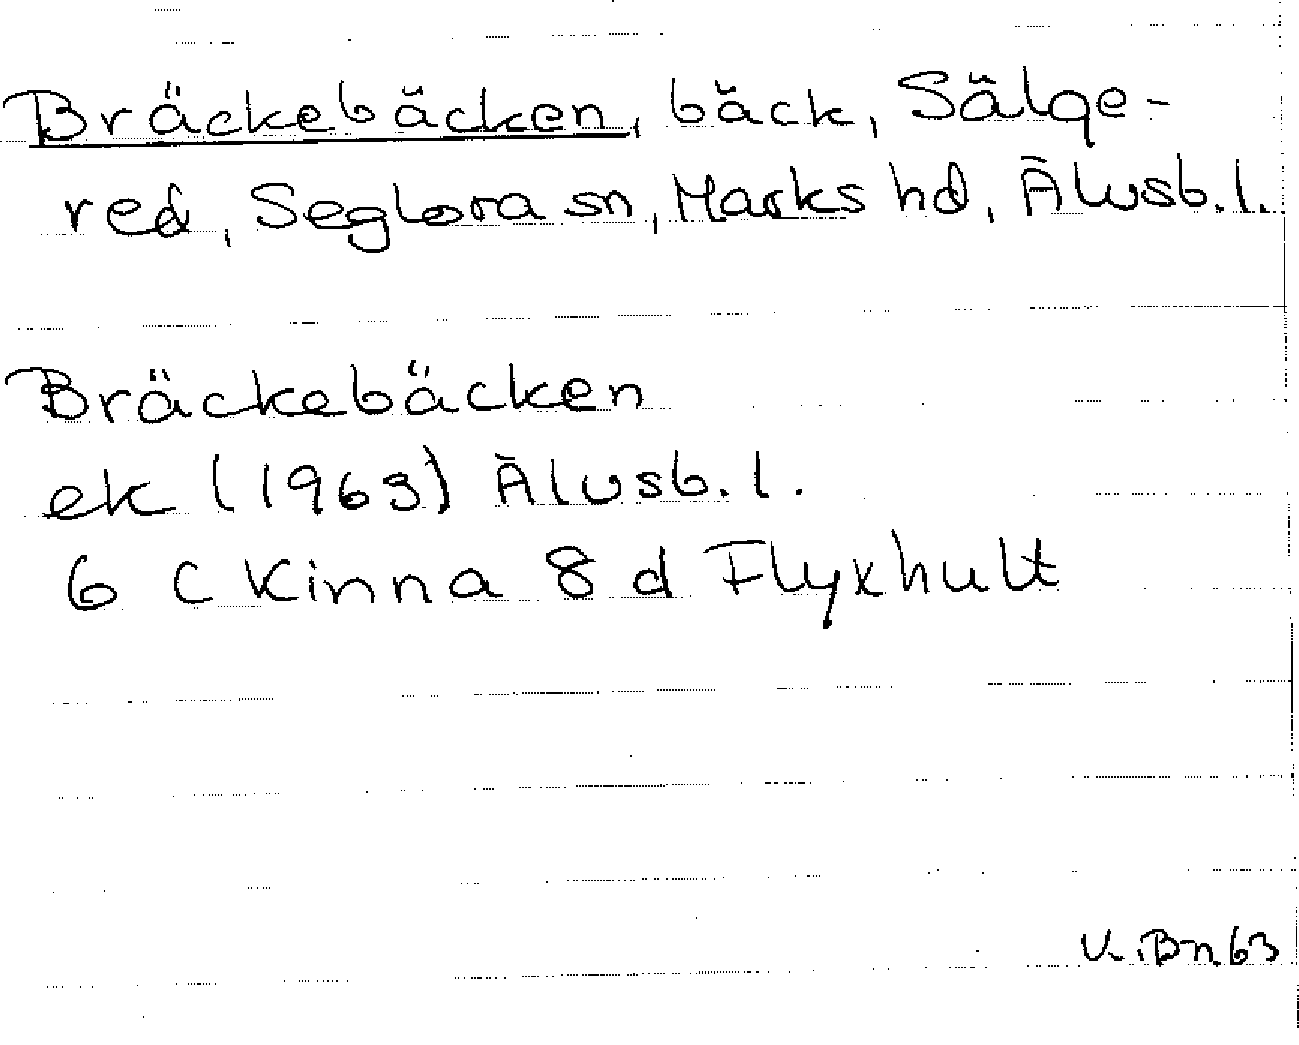 Bräckebäcken, bäck, Sälge-
red, Seglora sn, Marks hd, Älvsb. l.
Bräckebäcken
ek (1963) Älvsb. l.
6 C Kinna 8 d Flyxhult
V. Bn. 63